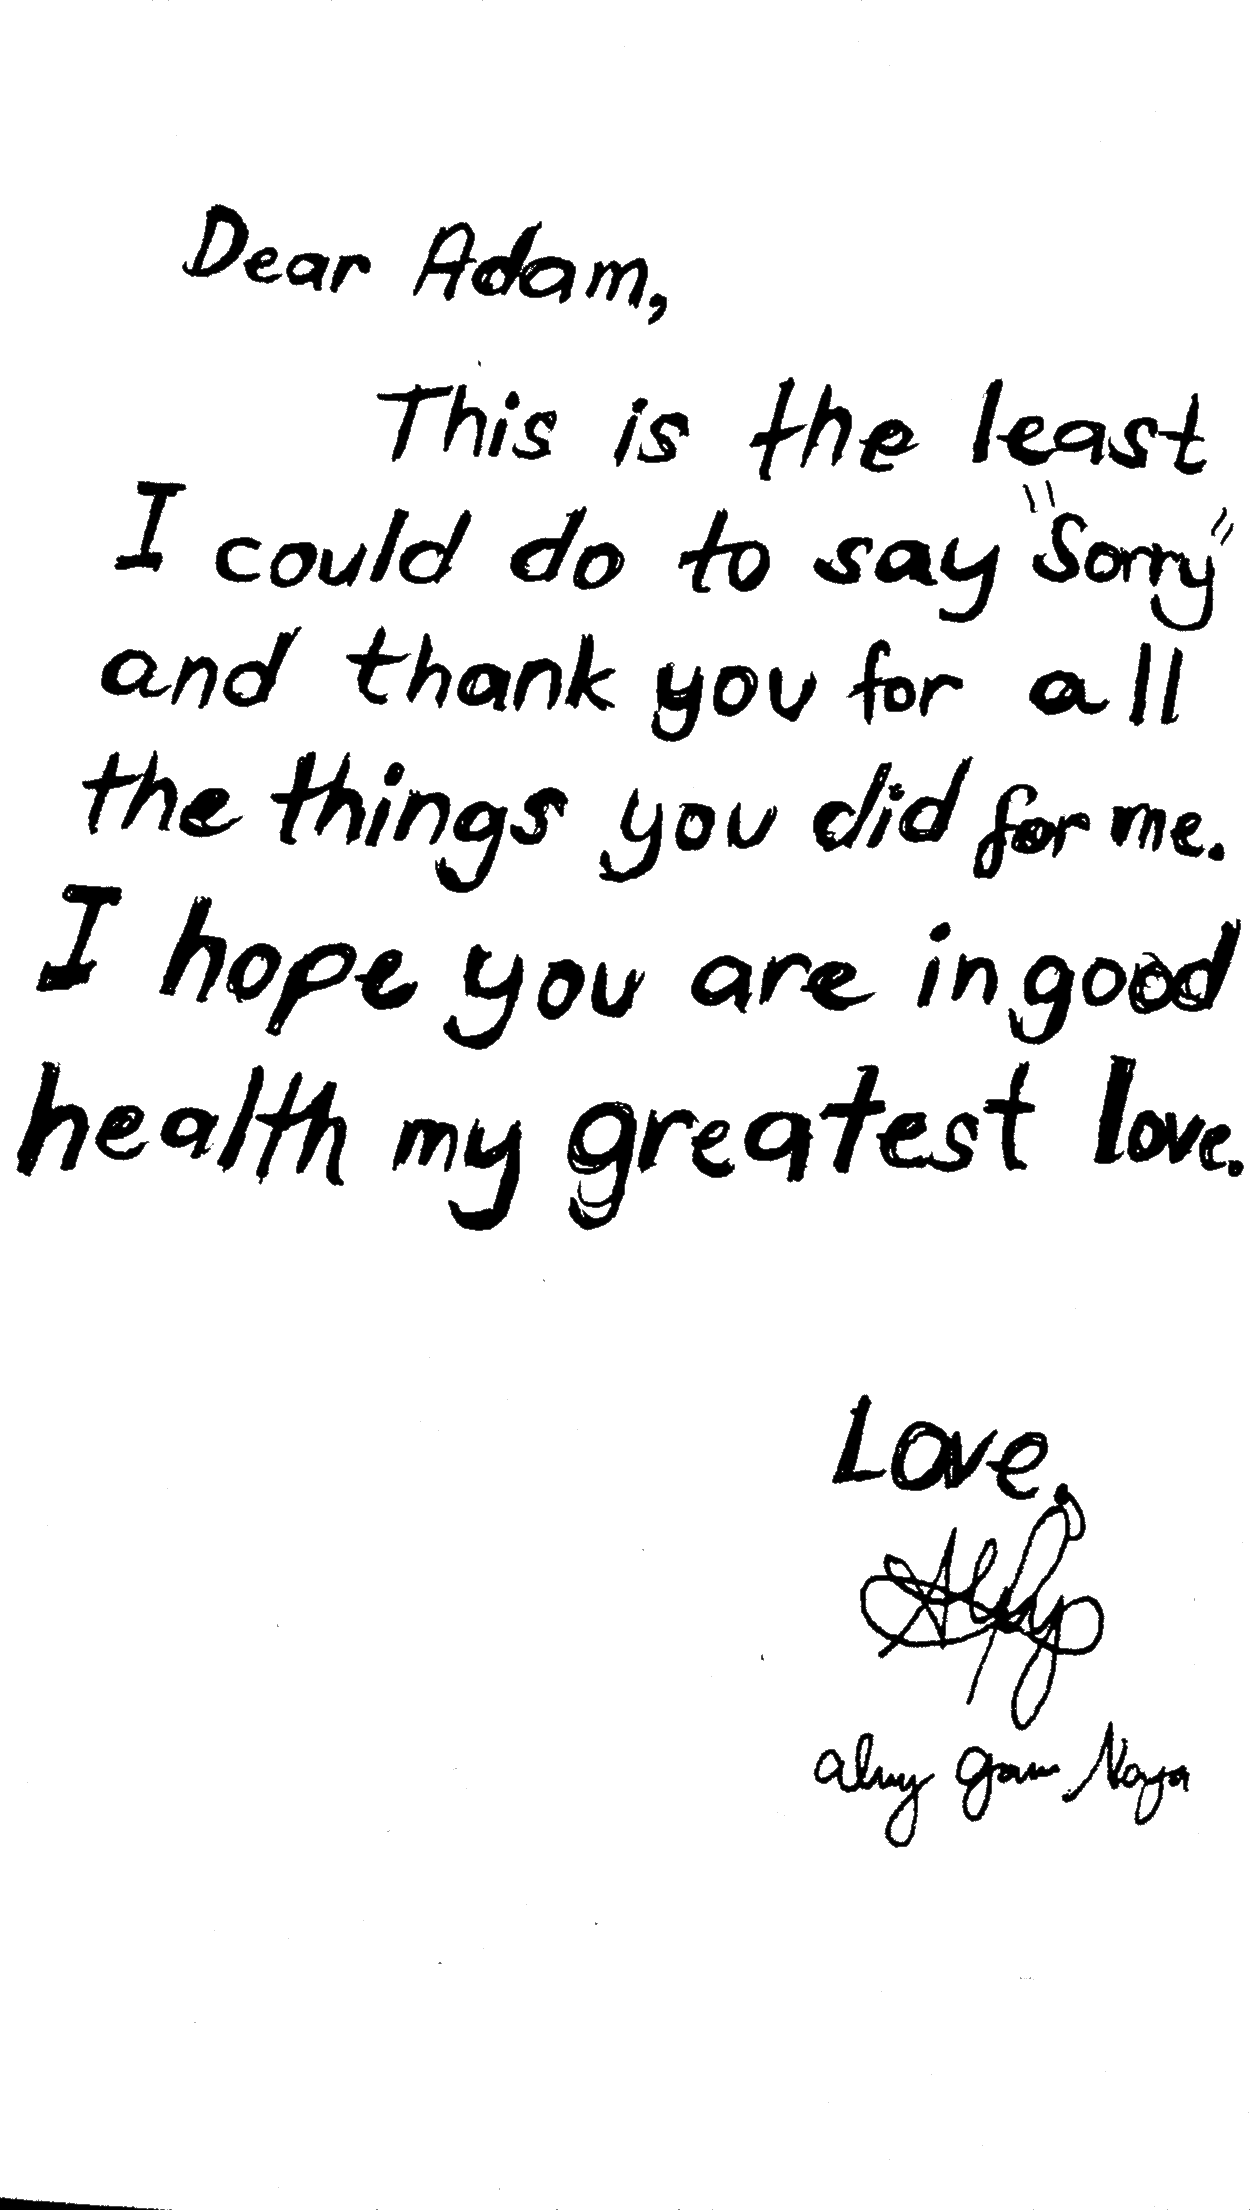 Dear Adam,
This is the least
I could do to say "Sorry"
and thank you for all
the things you did for me.
I hope you are in good
health my greatest love.
Love,
Naya